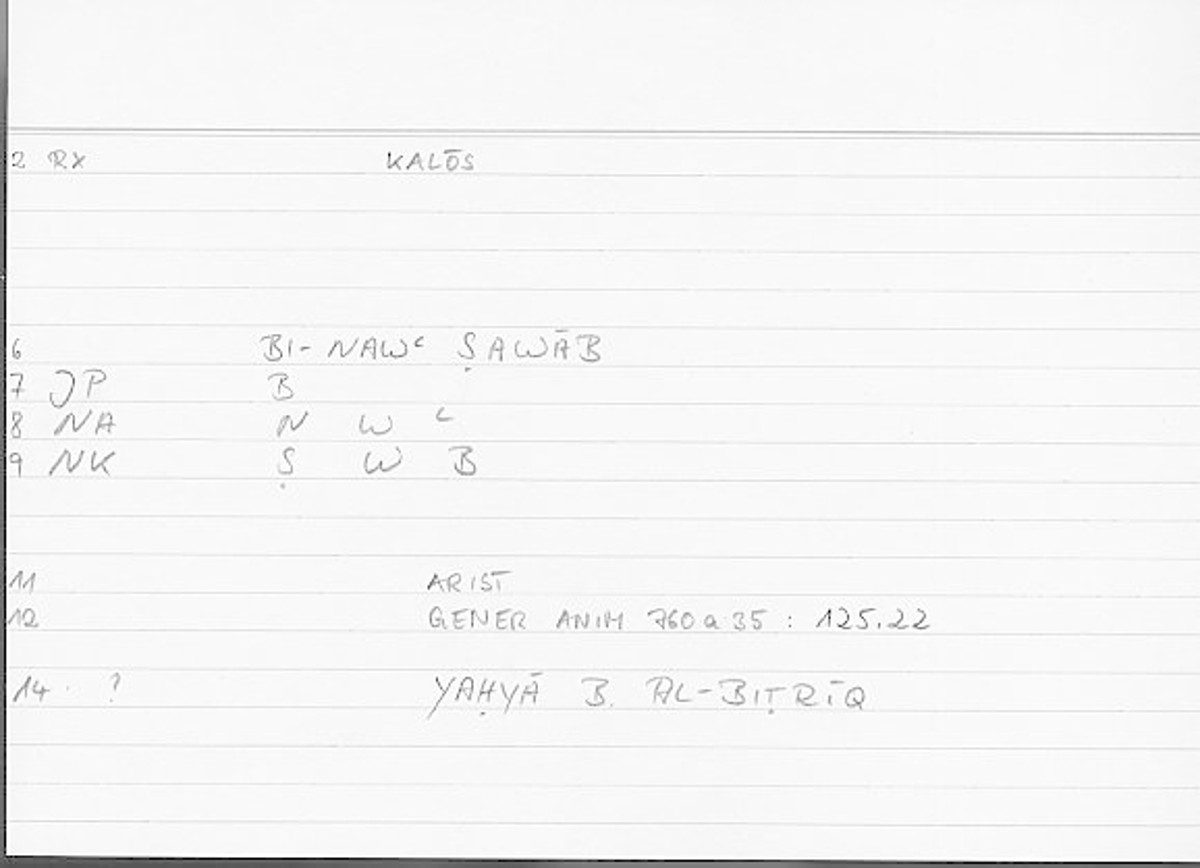 2 RX KALŌS
6 BI-NAWʿ ṢAWĀB
7 JP B
8 NA N W ʿ
9 NK Ṣ W B
11 ARIST
12 GENER ANIM 760a35 : 125.22
14. ? YAḤYĀ B. AL-BIṬRĪQ